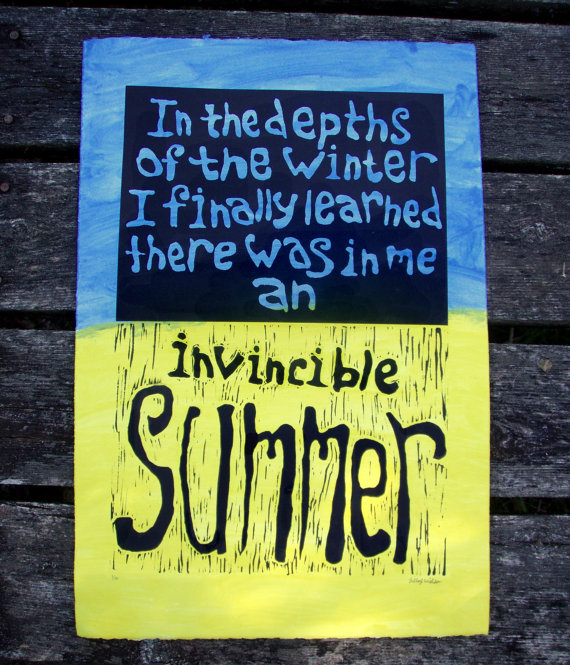 In the depths
of the winter
I finally learned
there was in me
an
invincible
Summer